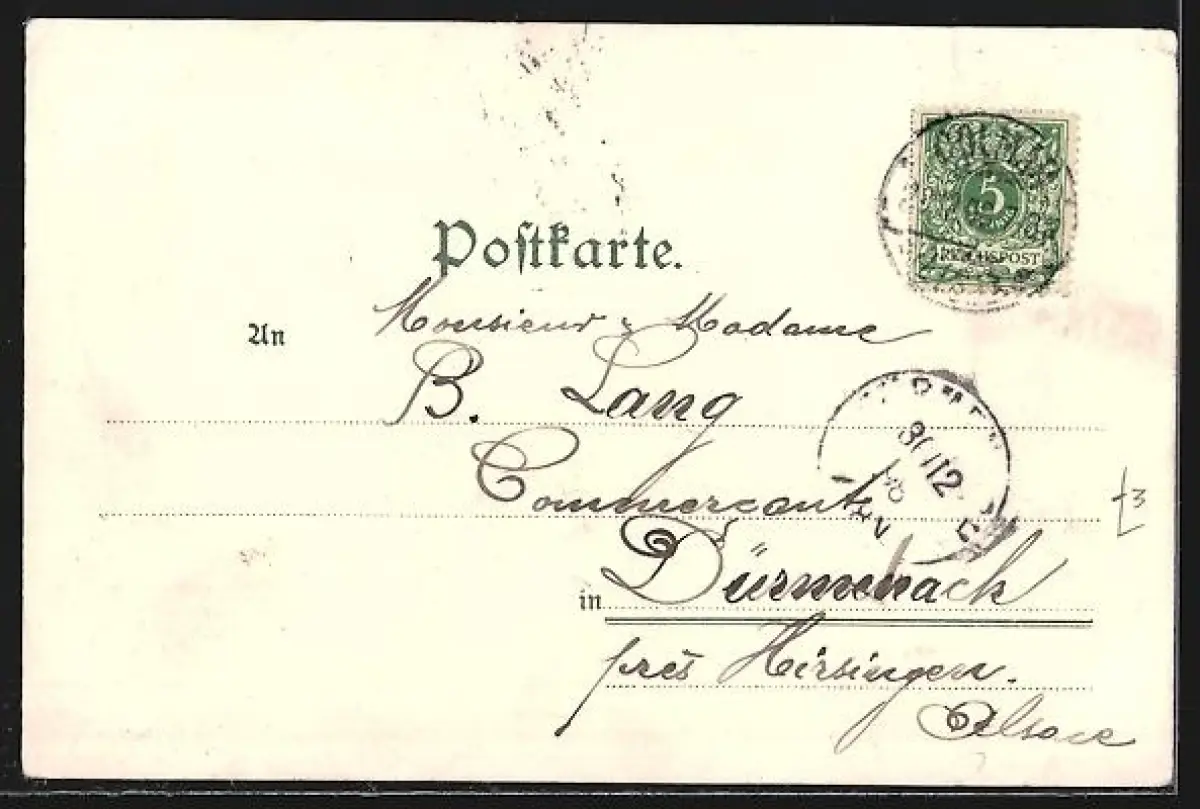 COLMAR
5
REICHSPOST
Postkarte.
An
Monsieur & Madame
B. Lang
30 12
98
Commerçant
Dürmenach
in
près Hirsingen.
Alsace